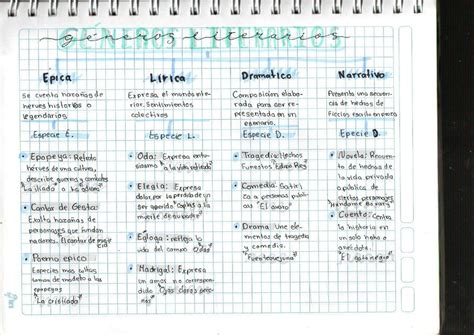 géneros literarios
GÉNEROS LITERARIOS
Épica
Se cuenta hazañas de
heroes historicos o
legendarios
Especie E.
Epopeya: Relato
heroes de una cultura,
describe guerras y combates
"La iliada" o "La odisea"
Cantar de Gesta:
Exalta hazañas de
personajes que fundan
naciones. El cantar de mio cid
Poema epico
Especies mas cultas,
toman de modelo a las
epopeyas
"La cristiada"
Lírica
Expresa el mundo inte-
rior. Sentimientos
colectivos
Especie L.
Oda: Expresa entu-
siasmo
"A la vida retirada"
Elegia: Expresa
dolor por la perdida de un
ser querido "Coplas a la
muerte de su padre"
Egloga: refleja la
vida del campo
Madrigal: Expresa
un amor no correspon-
dido "Ojos claros serenos"
Dramatico
Composición elabo-
rada para ser re-
presentada en un
escenario.
Especie D.
Tragedia: Hechos
Funestos "Edipo Rey"
Comedia: Satiri,
ca a personajes
"El avaro"
Drama: Une el-
ementos de tragedia
y comedia.
"Fuenteovejuna"
Narrativo
Presenta una secuen-
cia de hechos de
Ficcion escrito en prosa
Especie D.
Novela: Recuen-
to de hechos de
la vida privada
o publica de
ciertos personajes
"Madame Bovary"
Cuento: Centra
la historia en
un solo hecho o
anécdota.
"El gato negro"